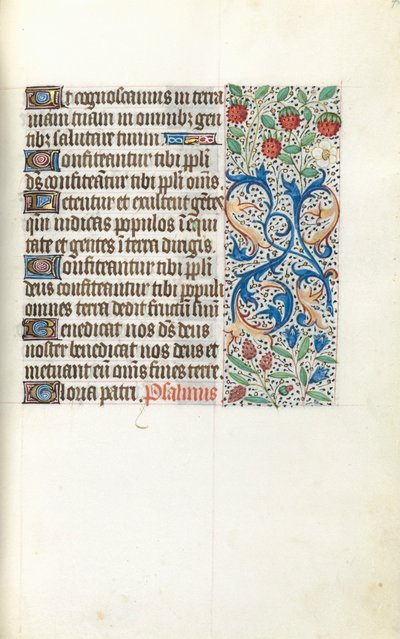 Ut cognoscamus in terra
uiam tuam in omnibz gen
tibz salutare tuum.
Confiteantur tibi ppli
ds confiteātur tibi ppli om̄s.
Letentur et exultent gētes
qm iudicas populos ī equi
tate et gentes ī terra dirigis.
Confiteantur tibi ppli
deus confiteantur tibi populi
omnes terra dedit fructū suū
Benedicat nos ds deus
noster benedicat nos deus et
metuant eū om̄s fines terre.
Gloria patri. Psalmus